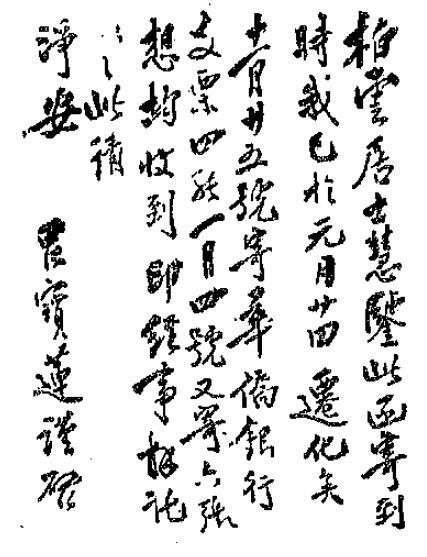 柏居士慧鑒此函寄到
時我已於元月廿四遷化矣
十一月廿五號寄華僑銀行
支票四張一月四號又寄六張
想均收到即事託
此請
淨安 寶蓮謹啓